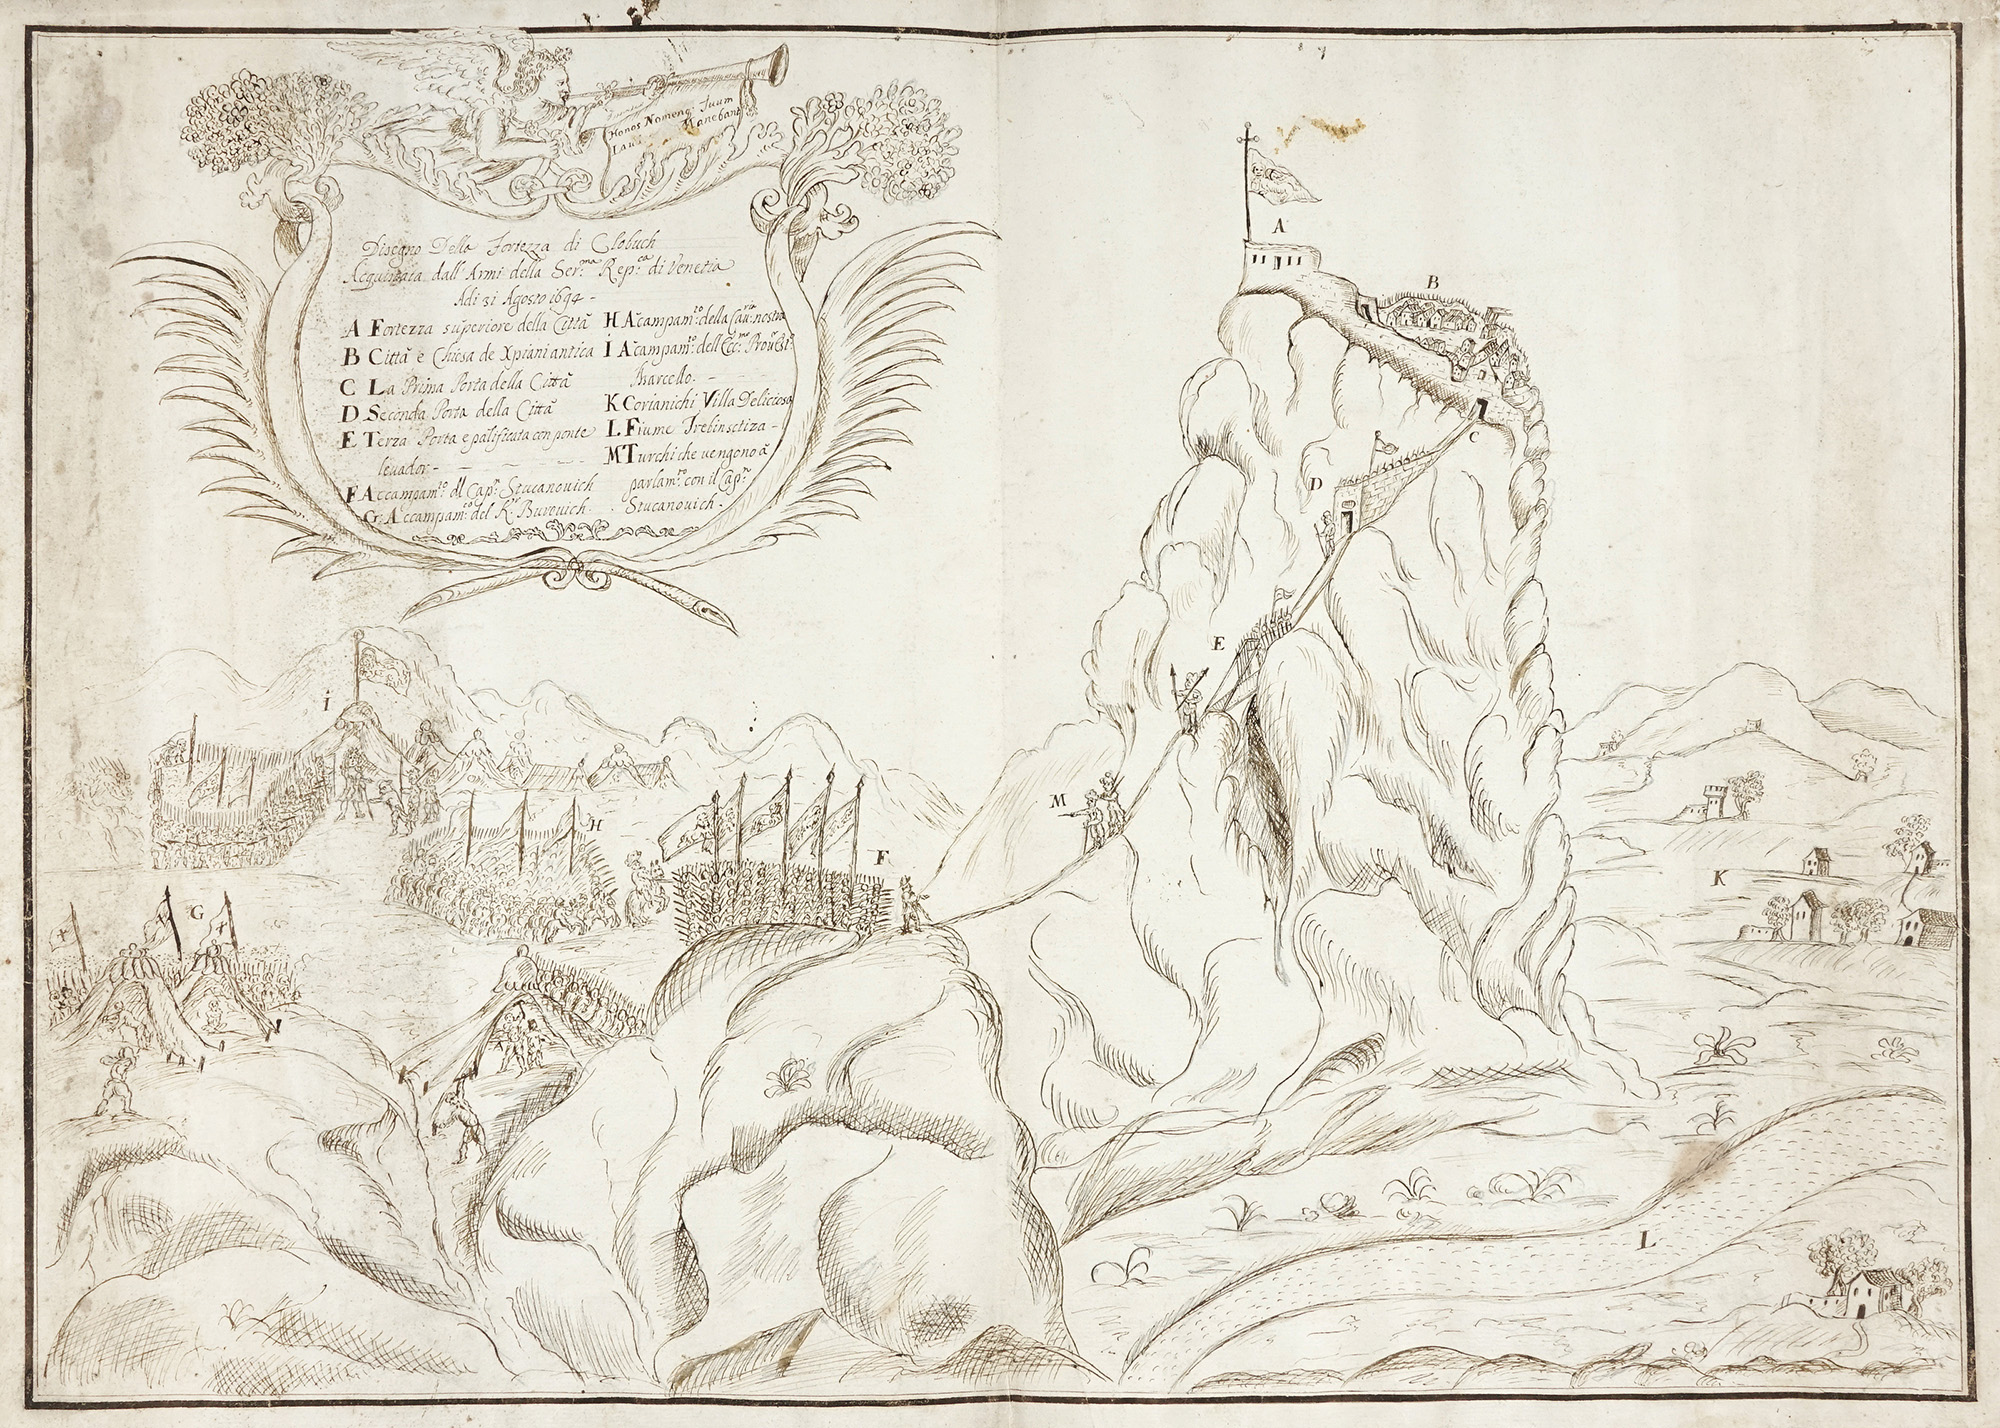 Honos Nomenq; Tuum
Lau Manebant
Disegno Della Fortezza di Clobuch
Acquistata dall'Armi della Ser.ma Rep.ca di Venetia
Adi 31 Agosto 1694 -
A Fortezza superiore della Città
B Città e Chiesa de Xpiani antica
C La Prima Porta della Città
D Seconda Porta della Città
E Terza Porta e palificata con ponte
levador -
F Accampam.to del Cap.n Stucanovich
G Accampam.to del K.r Burovich.
H Acampam.to della Cau.ria nostra
I Acampam.to dell'Ecc.mo Prou.r Est.
Marcello. -
K Corianichi Villa Delitiosa
L Fiume Trebinsctiza -
M Turchi che vengono à
parlam.to con il Cap.n
Stucanovich.
A
B
C
D
E
M
I
H
F
G
K
L